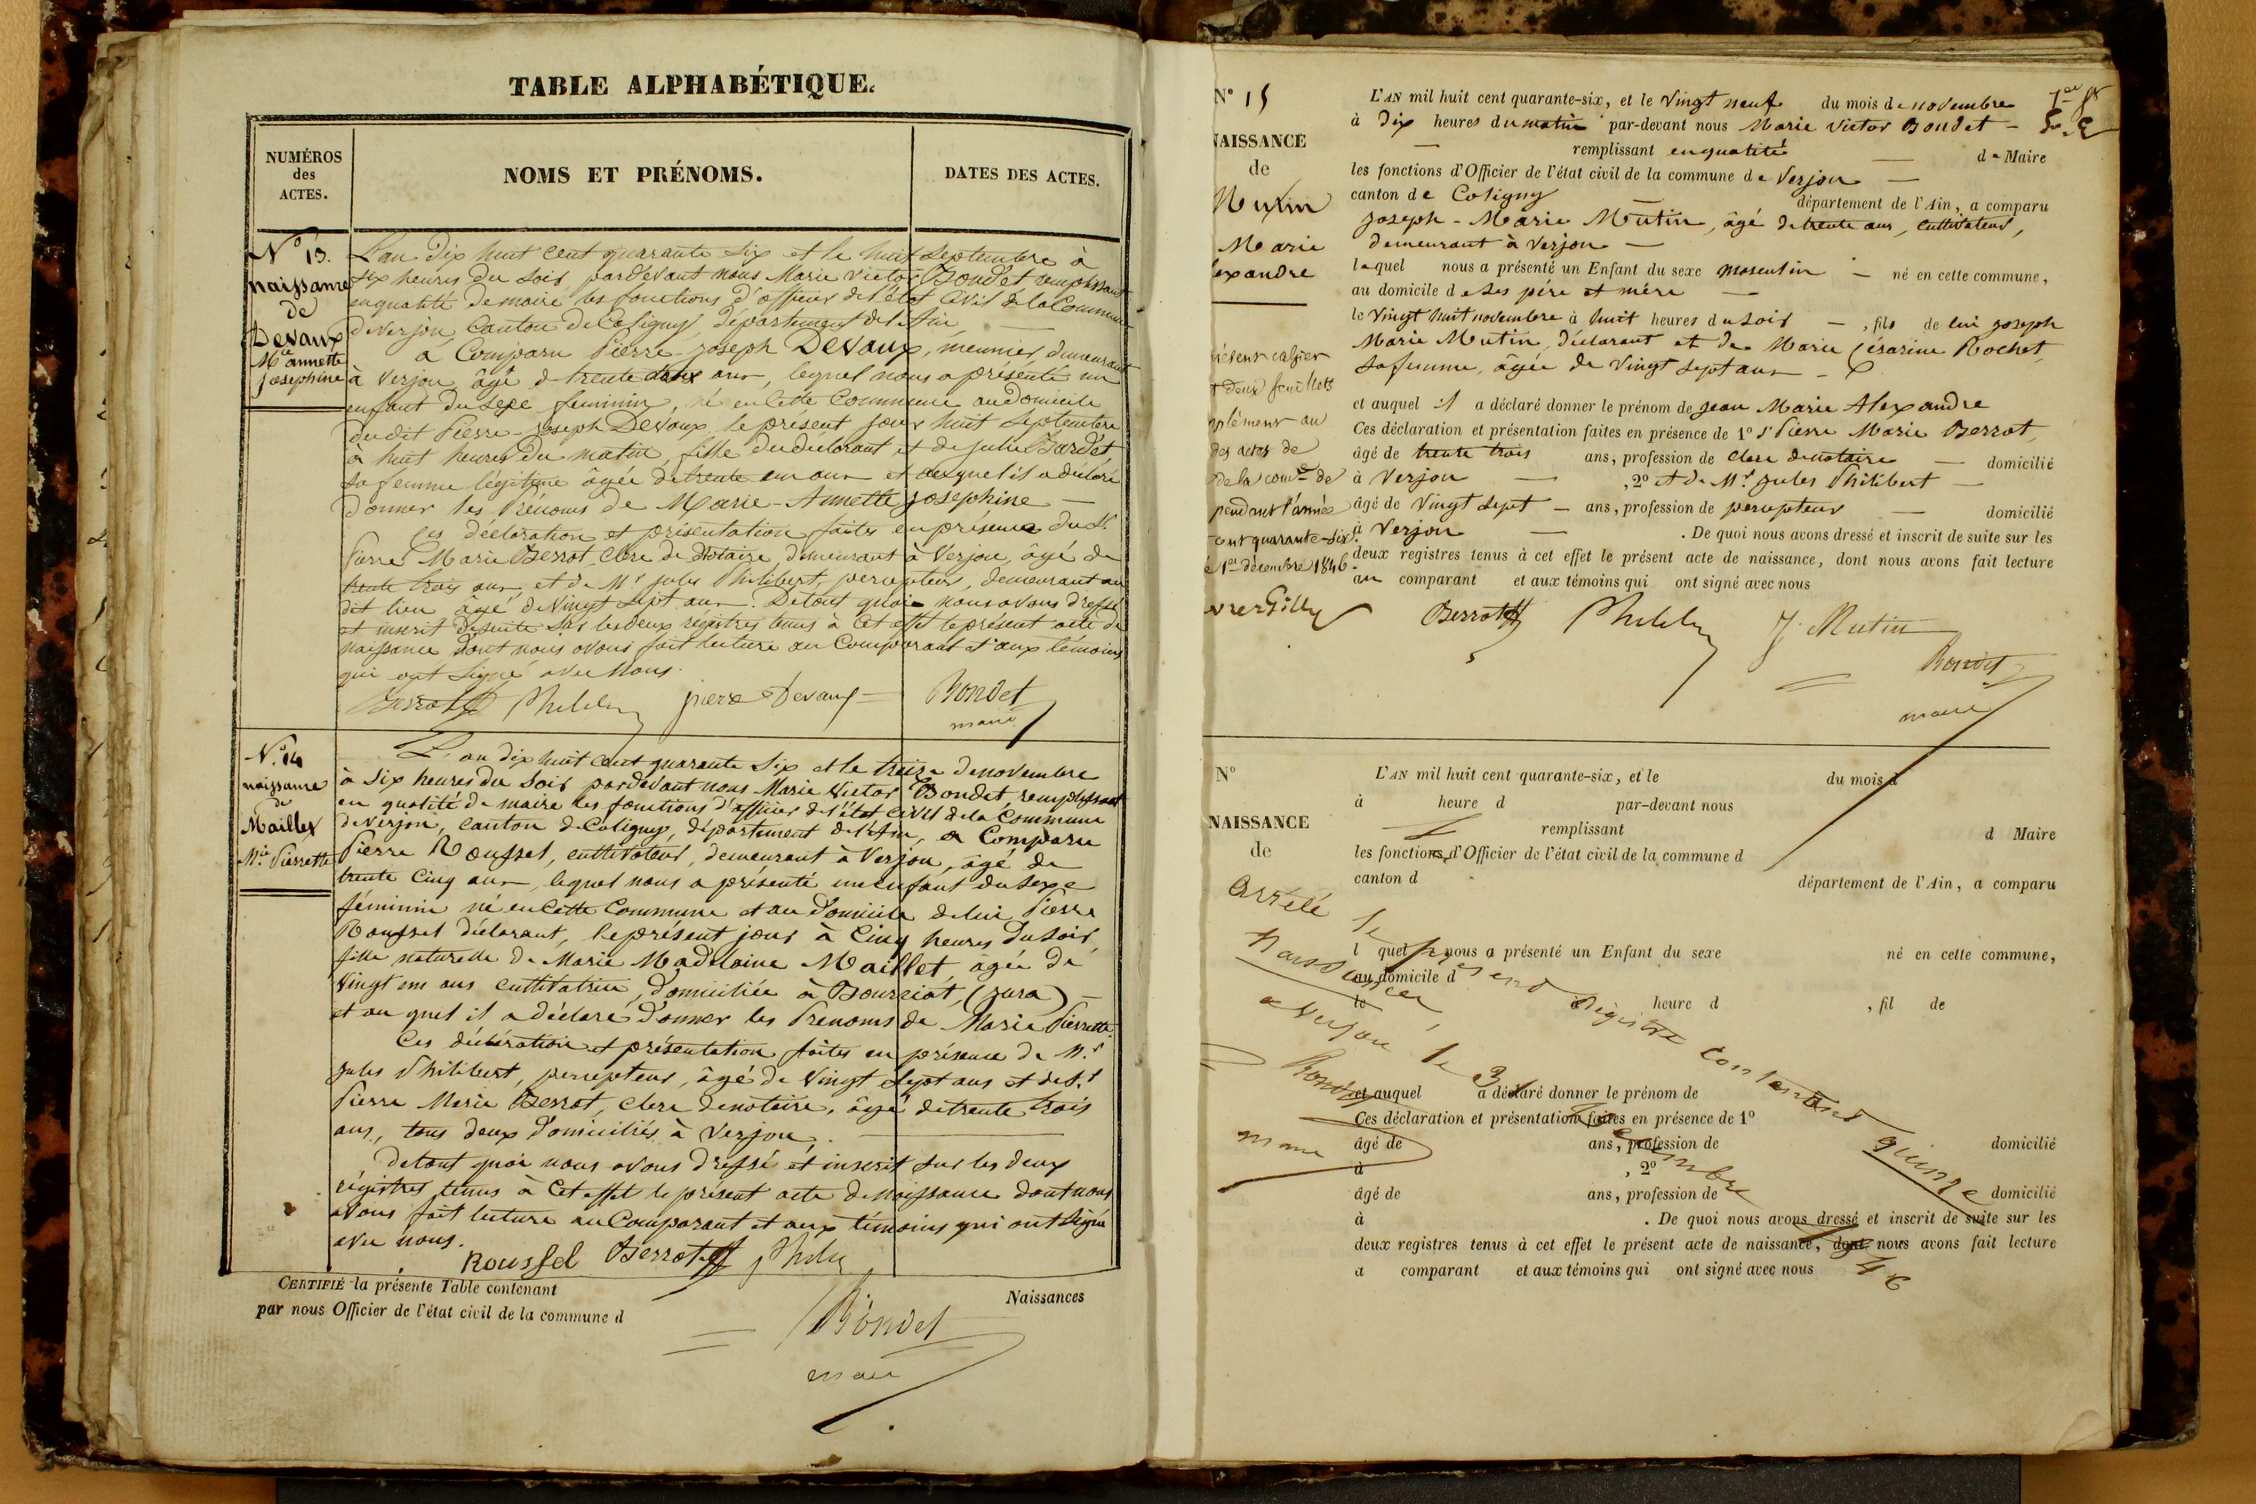 TABLE ALPHABÉTIQUE.
NUMÉROS
des
ACTES.
NOMS ET PRÉNOMS.
DATES DES ACTES.
N° 13.
naissance
de
Devaux
Mie annette
josephine
L'an dix huit cent quarante six et le huit septembre à
six heures du soir pardevant nous Marie victor Bondet remplissant
en qualité de maire les fonctions d'officier de l'état civil de la Commune
de verjon, Canton de Coligny, département de l'Ain
a Comparu Pierre-joseph Devaux, meunier, demeurant
à verjon, âgé de trente deux ans, lequel nous a présenté un
enfant du sexe feminin, né en Cette Commune au domicile
du dit Pierre-joseph Devaux, le présent jour huit septembre
à huit heures du matin, fille du déclarant, et de julie Bardet
sa femme légitime âgée de trente un ans et auquel il a déclaré
donner les Prénoms de Marie-Annette josephine —
Ces déclaration et présentation faites en présence du Sr
Pierre Marie Berrot, clerc de Notaire demeurant à Verjon, âgé de
trente trois ans, et de Mr jules Philibert, percepteur, demeurant au
dit lieu âgé de Vingt sept ans. De tout quoi nous avons dressé
et inscrit de suite sur les deux régistres tenus à Cet effet le présent acte de
naissance dont nous avons fait lecture au Comparant et aux témoins
qui ont signé avec Nous.
Berrot Philibert pierre Devaux Bondet
maire
N° 14
naissance
de
Maillet
Mie Pierrette
L'an dix huit cent quarante six et le treize de novembre
à six heures du soir pardevant nous Marie Victor Bondet, remplissant
en qualité de maire les fonctions d'officier de l'état civil de la Commune
de verjon, canton de Coligny, département de l'Ain, a Comparu
Pierre Roussel, cultivateur, demeurant à Verjon, âgé de
trente Cinq ans, lequel nous a présenté un enfant du sexe
féminin né en Cette Commune et au domicile de lui Pierre
Roussel déclarant, le présent jour à Cinq heures du soir,
fille naturelle de Marie Madelaine Maillet, âgée de
Vingt un ans cultivatrice, domiciliée à Bourciat, (jura) —
et au quel il a déclaré donner les Prenoms de Marie Pierrette
Ces déclaration et présentation faites en présence de Mr
jules Philibert, percepteur, âgé de Vingt sept ans et de Sr
Pierre Marie Berrot, clerc de notaire, âgé de trente trois
ans, tous deux domiciliés à Verjon.
De tout quoi nous avons dressé et inscrit sur les deux
régistres tenus à Cet effet le présent acte de naissance dont nous
avons fait lecture au Comparant et aux témoins qui ont signé
avec nous.
Roussel Berrot Phili
CERTIFIÉ la présente Table contenant Naissances
par nous Officier de l'état civil de la commune d
Bondet
maire
N° 15
NAISSANCE
de
Mutin
Marie
exandre
L'AN mil huit cent quarante-six, et le Vingt neuf du mois de novembre
à Dix heures du matin par-devant nous Marie Victor Bondet —
remplissant en qualité — de Maire
les fonctions d'Officier de l'état civil de la commune de Verjon —
canton de Coligny département de l'Ain, a comparu
joseph-Marie Mutin, âgé de trente ans, cultivateur,
demeurant à Verjon —
lequel nous a présenté un Enfant du sexe masculin — né en cette commune,
au domicile de ses père et mère —
le Vingt huit novembre à huit heures du soir —, fils de lui joseph
Marie Mutin, déclarant et de Marie Césarine Rochet,
sa femme, âgée de Vingt sept ans
et auquel il a déclaré donner le prénom de jean Marie Alexandre
Ces déclaration et présentation faites en présence de 1° Sr Pierre Marie Berrot,
âgé de trente trois ans, profession de clerc de notaire — domicilié
à Verjon — , 2° et de Mr jules Philibert —
âgé de Vingt sept — ans, profession de percepteur — domicilié
à Verjon — . De quoi nous avons dressé et inscrit de suite sur les
deux registres tenus à cet effet le présent acte de naissance, dont nous avons fait lecture
au comparant et aux témoins qui ont signé avec nous
résent cahier
t deux feuillets
pplément au
des actes de
de la comne de
pendant l'année
cent quarante-six.
le 1er décembre 1846.
Berrot Philiber J. Mutin
Bondet
maire
N°
NAISSANCE
de
L'AN mil huit cent quarante-six, et le du mois d
à heure d par-devant nous
remplissant d Maire
les fonctions d'Officier de l'état civil de la commune d
canton d département de l'Ain, a comparu
l quel nous a présenté un Enfant du sexe né en cette commune,
au domicile d
le à heure d , fil de
et auquel a déclaré donner le prénom de
Ces déclaration et présentation faites en présence de 1°
âgé de ans, profession de domicilié
à , 2°
âgé de ans, profession de domicilié
à . De quoi nous avons dressé et inscrit de suite sur les
deux registres tenus à cet effet le présent acte de naissance, dont nous avons fait lecture
a comparant et aux témoins qui ont signé avec nous
Arrêté le présent Régistre contenant quinze
naissances,
a verjon le 31 Décembre 1846
Bondet
maire